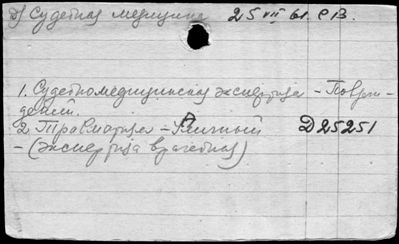 д) Судебная медицина 25 VII 61. СВ.
1. Судебномедицинская экспертиза - Повреж-
дений.
2. Травматизм - Уличный Д25251
- (экспертиза врачебная)